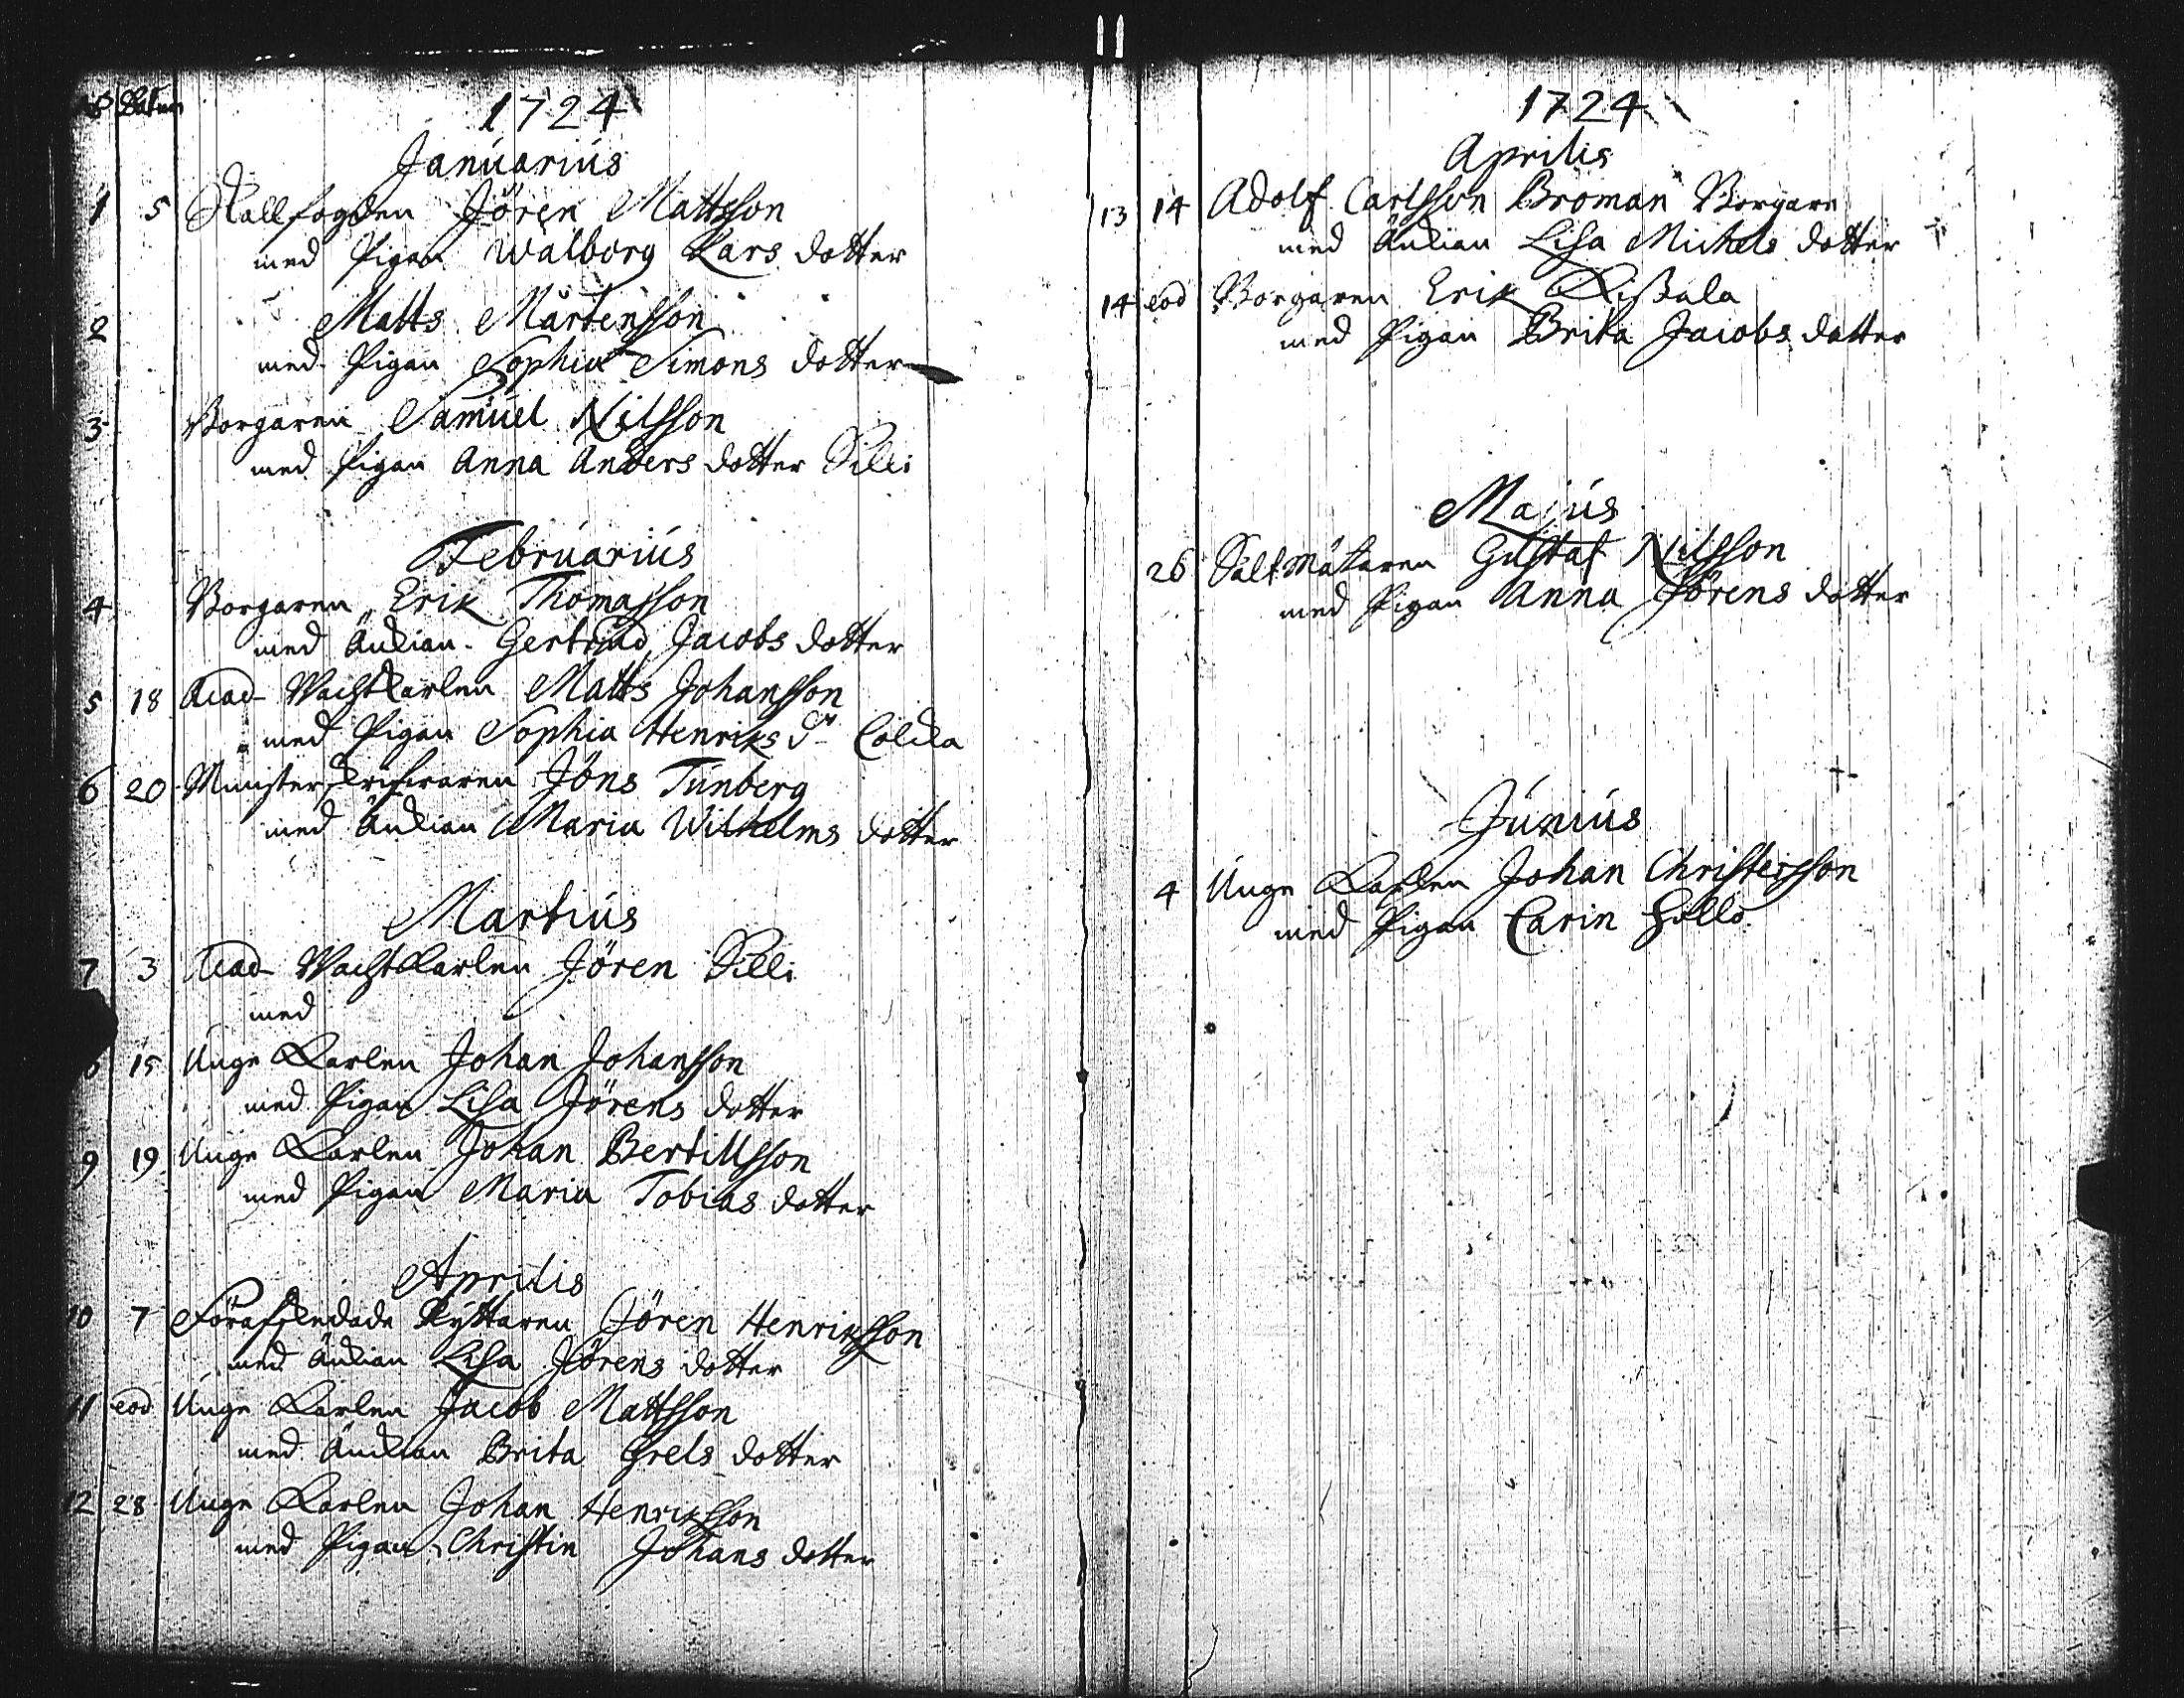 No Datum
1724
Januarius
1 5 Stallfogden Jören Mattsson
med Pigan Walborg Lars dotter
2 Matts Mårtensson
med Pigan Sophia Simons dotter
3 Borgaren Samuel Nilsson
med Pigan Anna Anders dotter Pilli
Februarius
4 Borgaren Erik Thomasson
med Änkian Gertrud Jacobs dotter
5 18 Acad Wachtkarlen Matts Johansson
med Pigan Sophia Henriks dr Colcka
6 20 Munsterskrifwaren Jöns Tunberg
med Änkian Maria Wilhelms dotter
Martius
7 3 Acad Wachtkarlen Jören Pilli
med
8 15 Unge Karlen Johan Johansson
med Pigan Lisa Jörens dotter
9 19 Unge Karlen Johan Bertillsson
med Pigan Maria Tobias dotter
Aprilis
10 7 Förafskedade Ryttaren Jören Henriksson
med Änkian Lisa Jörens dotter
11 eod Unge Karlen Jacob Mattsson
med Änkian Brita Grels dotter
12 28 Unge Karlen Johan Henriksson
med Pigan Christin Johans dotter
1724
Aprilis
13 14 Adolf Carlsson Broman Borgare
med Änkian Lisa Michels dotter
14 eod Borgaren Erik Kissala
med Pigan Brita Jacobs dotter
Majus
26 Saltmätaren Gustaf Nilsson
med Pigan Anna Jörens dotter
Junius
4 Unge Karlen Johan Christersson
med Pigan Carin Hollo